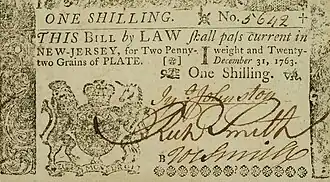 ONE SHILLING. No. 5642
THIS Bill by LAW shall pass current in
NEW-JERSEY, for Two Penny- weight and Twenty-
two Grains of PLATE. December 31, 1763.
One Shilling.
Johnston
Rich Smith
W Smith